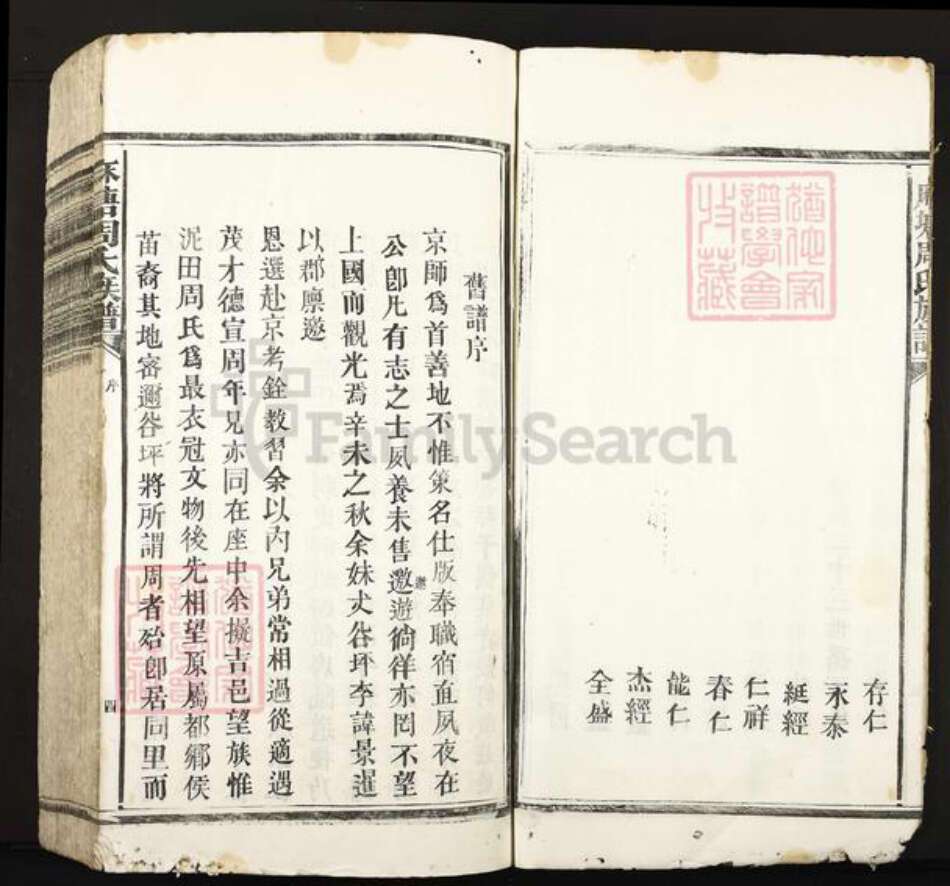 麻塘周氏族譜
存仁
永泰
綎經
仁祥
春仁
能仁
杰經
全盛
猶他家
譜學會
收藏
舊譜序
京師爲首善地不惟策名仕版奉職宿直夙夜在
公卽凡有志之士夙養未售遨遊徜徉亦罔不望
上國而觀光焉辛未之秋余妹丈谷坪李諱景暹
以郡廩邀
恩選赴京考銓教習余以內兄弟常相過從適遇
茂才德宣周年兄亦同在座中余擬吉邑望族惟
泥田周氏爲最衣冠文物後先相望原屬都鄉侯
苗裔其地審邇谷坪將所謂周者殆卽居同里而
麻塘周氏族譜
序
四
猶他家
譜學會
收藏
FamilySearch